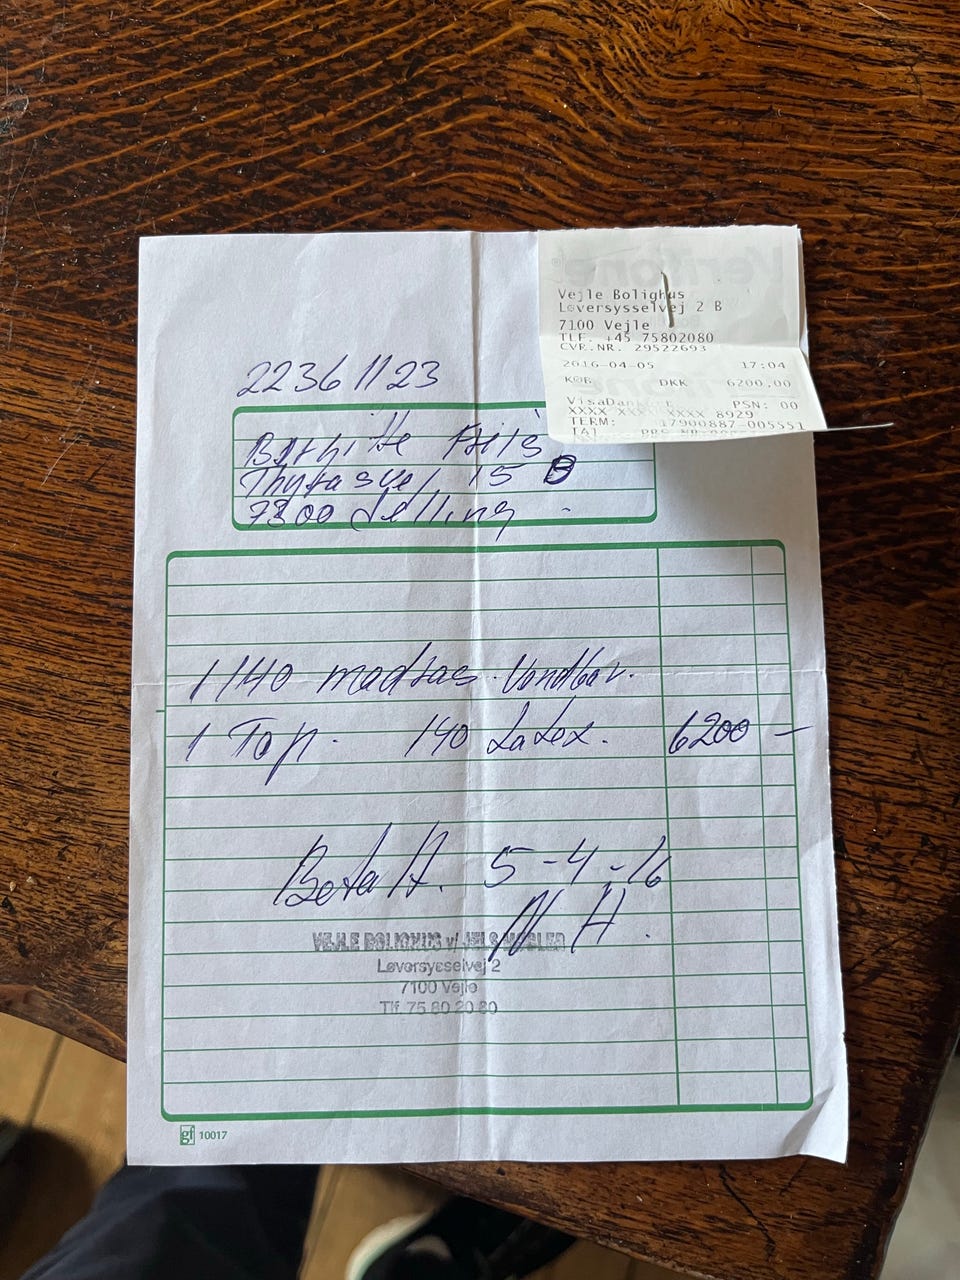 Verifone
Vejle Bolighus
Løversysselvej 2 B
7100 Vejle
TLF. +45 75802080
CVR.NR. 29522693
2016-04-05 17:04
KØB DKK 6200,00
PSN: 00
XXXX XXXX XXXX 8929
TERM: 17900887-005551
22361123
Birgitte Friis
Thyrasvej 15 B
7300 Jelling
1 140 madras. Vendbar.
1 Top. 140 Latex. 6200 —
Betalt. 5-4-16
N H.
VEJLE BOLIGHUS v/ JELS MØBLER
Løversysselvej 2
7100 Vejle
Tlf. 75 80 20 80
gf 10017